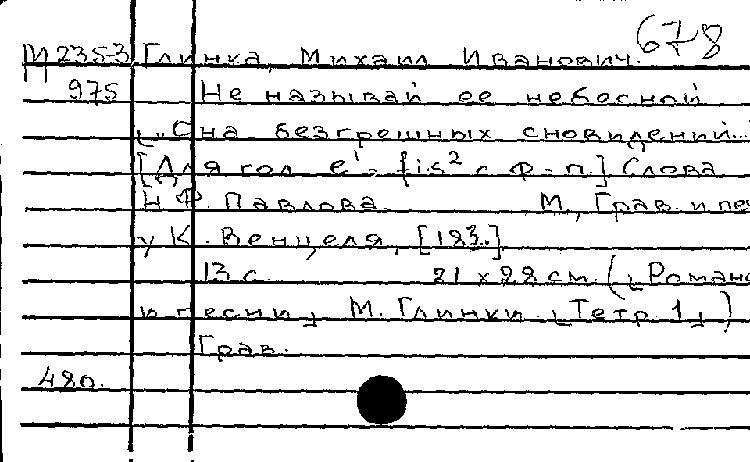 678
М 2353 Глинка, Михаил Иванович.
П 975 Не называй ее небесной
„Сна безгрешных сновидений...
[Для гол. e¹- fis² с ф-п.] Слова
Н.Ф. Павлова. М., Грав. и печ
у К. Венцеля, [183.]
13 с. 21 х 28 см. („Романс
и песни„ М. Глинки. „Тетр. 1„)
Грав.
48о.